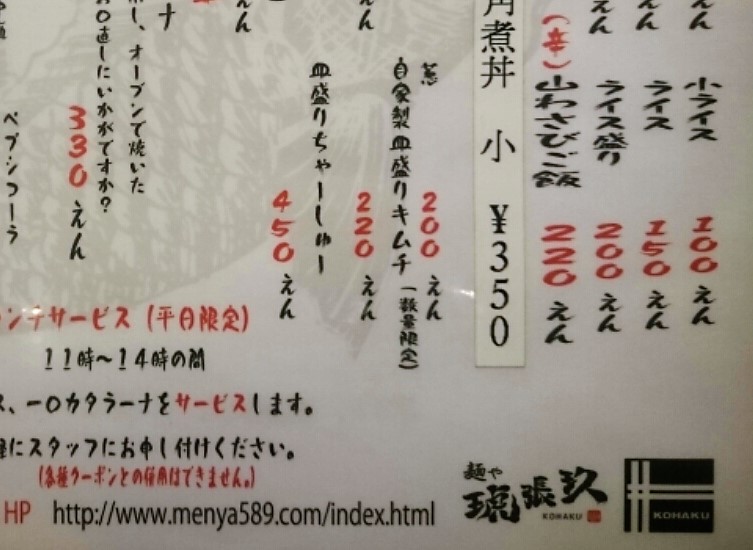 えん
えん
小ライス
100えん
ライス
150えん
えん
ライス盛り
200えん
(辛)
山わさびご飯
220えん
角煮丼 小 ¥350
葱
200えん
自家製皿盛りキムチ(数量限定)
えん
220えん
皿盛りちゃーしゅー
450えん
えん
し、オーブンで焼いた
お口直しにいかがですか?
330えん
ペプシコーラ
ンチサービス(平日限定)
11時〜14時の間
ス、一口カタラーナをサービスします。
軽にスタッフにお申し付けください。
(各種クーポンとの併用はできません。)
HP http://www.menya589.com/index.html
麺や
琥張玖
KOHAKU
KOHAKU